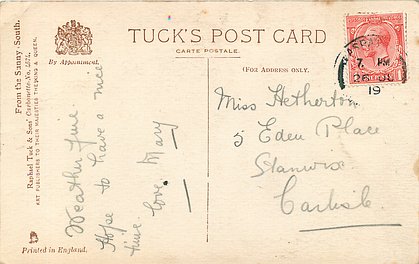 TUCK'S POST CARD
CARTE POSTALE.
(FOR ADDRESS ONLY.)
By Appointment.
From the Sunny South.
Raphael Tuck & Sons' "Carbonette"
ART PUBLISHERS TO THEIR MAJESTIES THE KING & QUEEN.
Printed in England.
Weather fine
Hope to have a nice
time. love. Mary
Miss Hetherton
5 Eden Place
Stanwix
Carlisle
7 PM
19